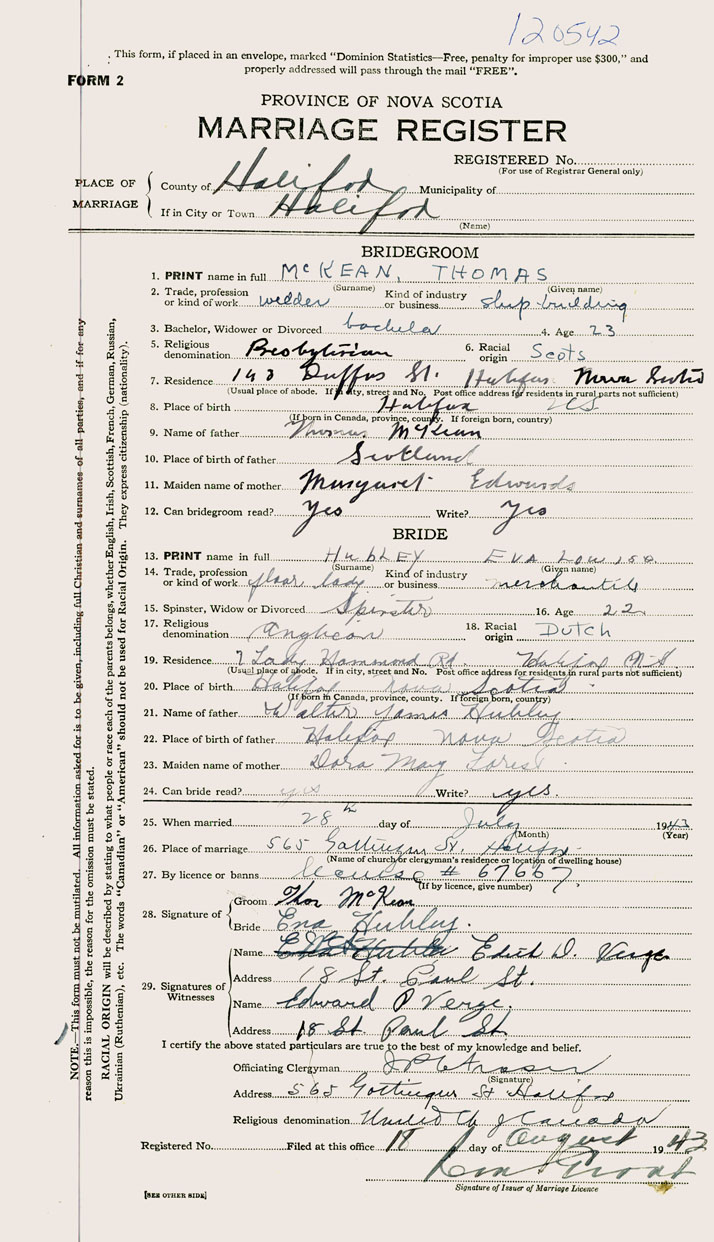 120542
This form, if placed in an envelope, marked "Dominion Statistics—Free, penalty for improper use $300," and
properly addressed will pass through the mail "FREE".
FORM 2
PROVINCE OF NOVA SCOTIA
MARRIAGE REGISTER
REGISTERED No.
(For use of Registrar General only)
PLACE OF MARRIAGE
County of Halifax Municipality of
If in City or Town Halifax
(Name)
BRIDEGROOM
1. PRINT name in full McKEAN, THOMAS
(Surname) (Given name)
2. Trade, profession or kind of work welder Kind of industry or business ship-building
3. Bachelor, Widower or Divorced bachelor 4. Age 23
5. Religious denomination Presbyterian 6. Racial origin Scots
7. Residence 193 Duffus St. Halifax Nova Scotia
(Usual place of abode. If in city, street and No. Post office address for residents in rural parts not sufficient)
8. Place of birth Halifax NS
(If born in Canada, province, county. If foreign born, country)
9. Name of father Thomas McKean
10. Place of birth of father Scotland
11. Maiden name of mother Margaret Edwards
12. Can bridegroom read? Yes Write? Yes
BRIDE
13. PRINT name in full HUBLEY EVA LOUISE
(Surname) (Given name)
14. Trade, profession or kind of work floor lady Kind of industry or business merchantile
15. Spinster, Widow or Divorced Spinster 16. Age 22
17. Religious denomination Anglican 18. Racial origin Dutch
19. Residence 7 Lady Hammond Rd. Halifax N.S
(Usual place of abode. If in city, street and No. Post office address for residents in rural parts not sufficient)
20. Place of birth Halifax Nova Scotia
(If born in Canada, province, county. If foreign born, country)
21. Name of father Walter James Hubley
22. Place of birth of father Halifax Nova Scotia
23. Maiden name of mother Dora May
24. Can bride read? yes Write? yes.
25. When married 28th day of July 1943
(Month) (Year)
26. Place of marriage 565 Gottingen St. Halifax
(Name of church or clergyman's residence or location of dwelling house)
27. By licence or banns License # 67667
(If by licence, give number)
28. Signature of
Groom Thos McKean
Bride Eva Hubley.
29. Signatures of Witnesses
Name Edith D. Verge
Address 18 St. Paul St.
Name Edward P Verge.
Address 18 St Paul St
I certify the above stated particulars are true to the best of my knowledge and belief.
Officiating Clergyman
(Signature)
Address 565 Gottingen St Halifax
Religious denomination United Ch of Canada
Registered No. Filed at this office 19 day of August 1943
Signature of Issuer of Marriage Licence
[SEE OTHER SIDE]
NOTE.—This form must not be mutilated. All information asked for is to be given, including full Christian and surnames of all parties, and if for any
reason this is impossible, the reason for the omission must be stated.
RACIAL ORIGIN will be described by stating to what people or race each of the parents belongs, whether English, Irish, Scottish, French, German, Russian,
Ukrainian (Ruthenian), etc. The words "Canadian" or "American" should not be used for Racial Origin. They express citizenship (nationality).